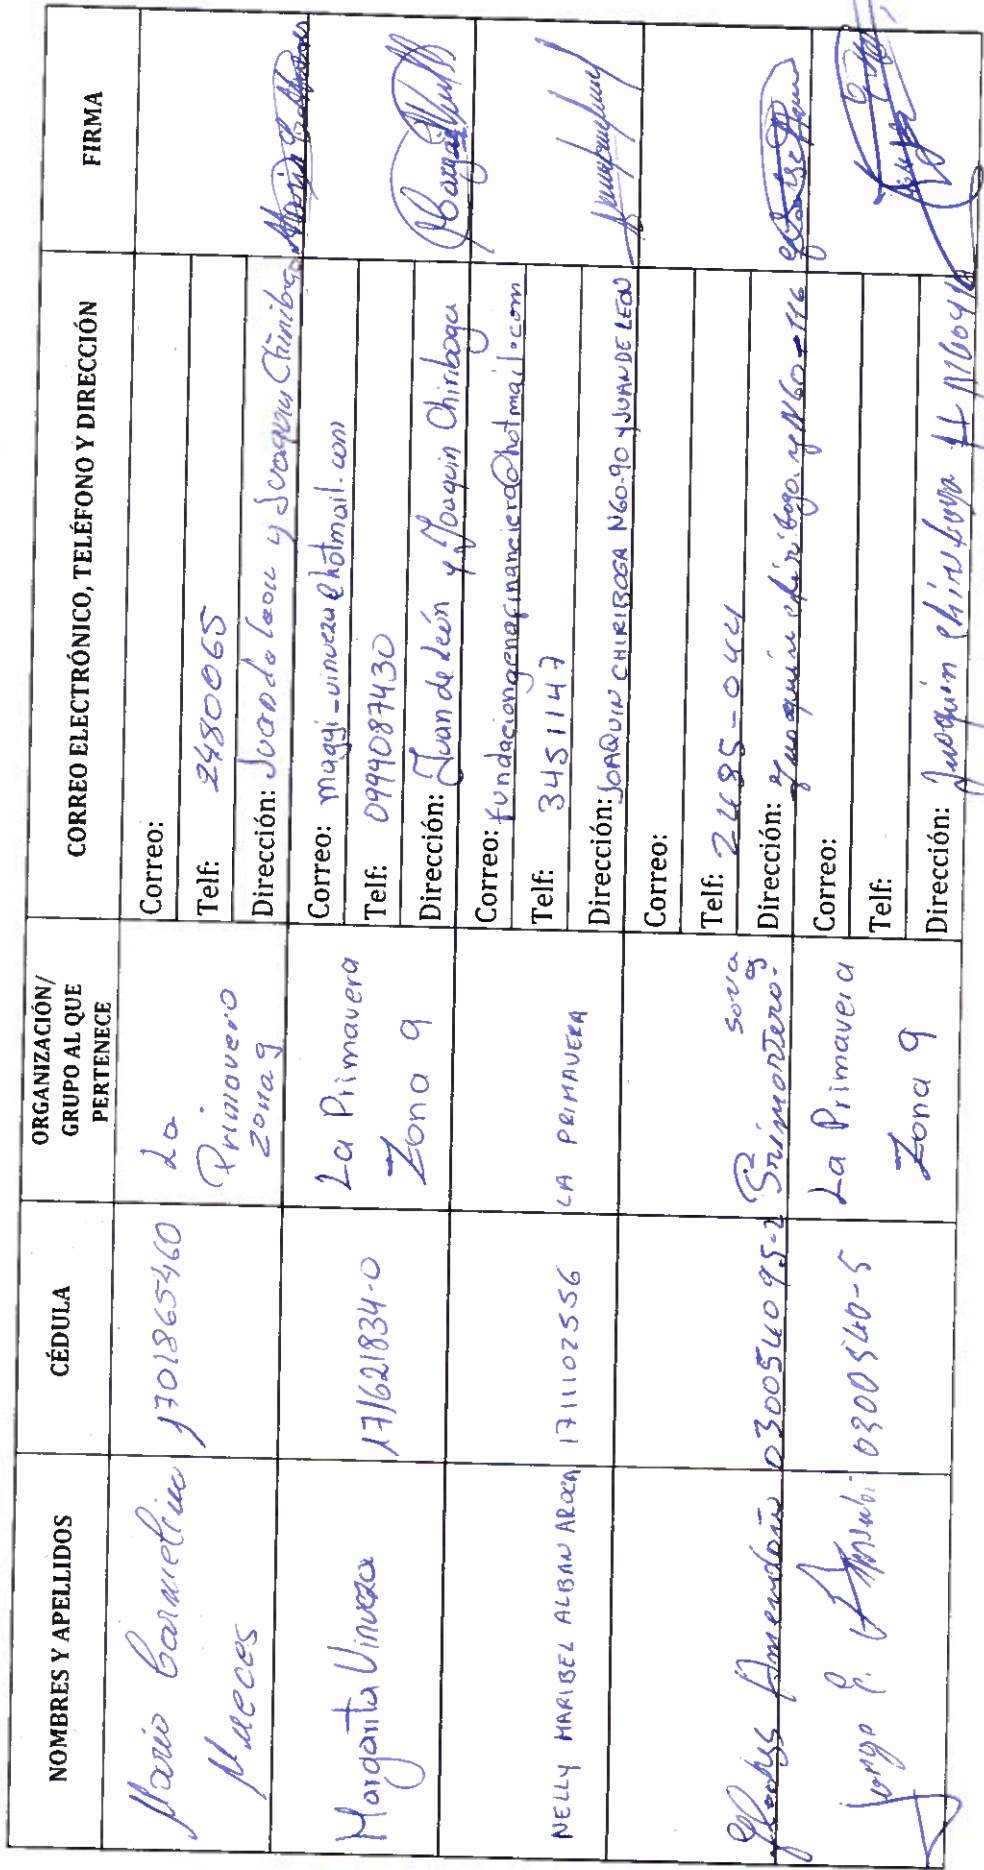 NOMBRES Y APELLIDOS
CÉDULA
ORGANIZACIÓN/
GRUPO AL QUE
PERTENECE
CORREO ELECTRÓNICO, TELÉFONO Y DIRECCIÓN
FIRMA
Mario Carmelina
Nueces
1701865460
La
Primavera
zona 9
Correo:
Telf: 2480065
Dirección: Juan de Leon y Joaquin Chiriboga
Margarita Vinueza
171621834-0
La Primavera
Zona 9
Correo: maggi-vinueza@hotmail.com
Telf: 0994087430
Dirección: Juan de León y Joaquin Chiriboga
NELLY MARIBEL ALBAN AROCA
1711102556
LA PRIMAVERA
Correo: fundaciongenafinanciera@hotmail.com
Telf: 3451147
Dirección: JOAQUIN CHIRIBOGA N60-90 y JUAN DE LEON
Amendaño
030054095-2
Correo:
Telf: 2485-044
Dirección: Joaquin chiriboga y N60-116
Jorge E.
0300540-5
La Primavera
Zona 9
Correo:
Telf:
Dirección: Joaquin chiriboga